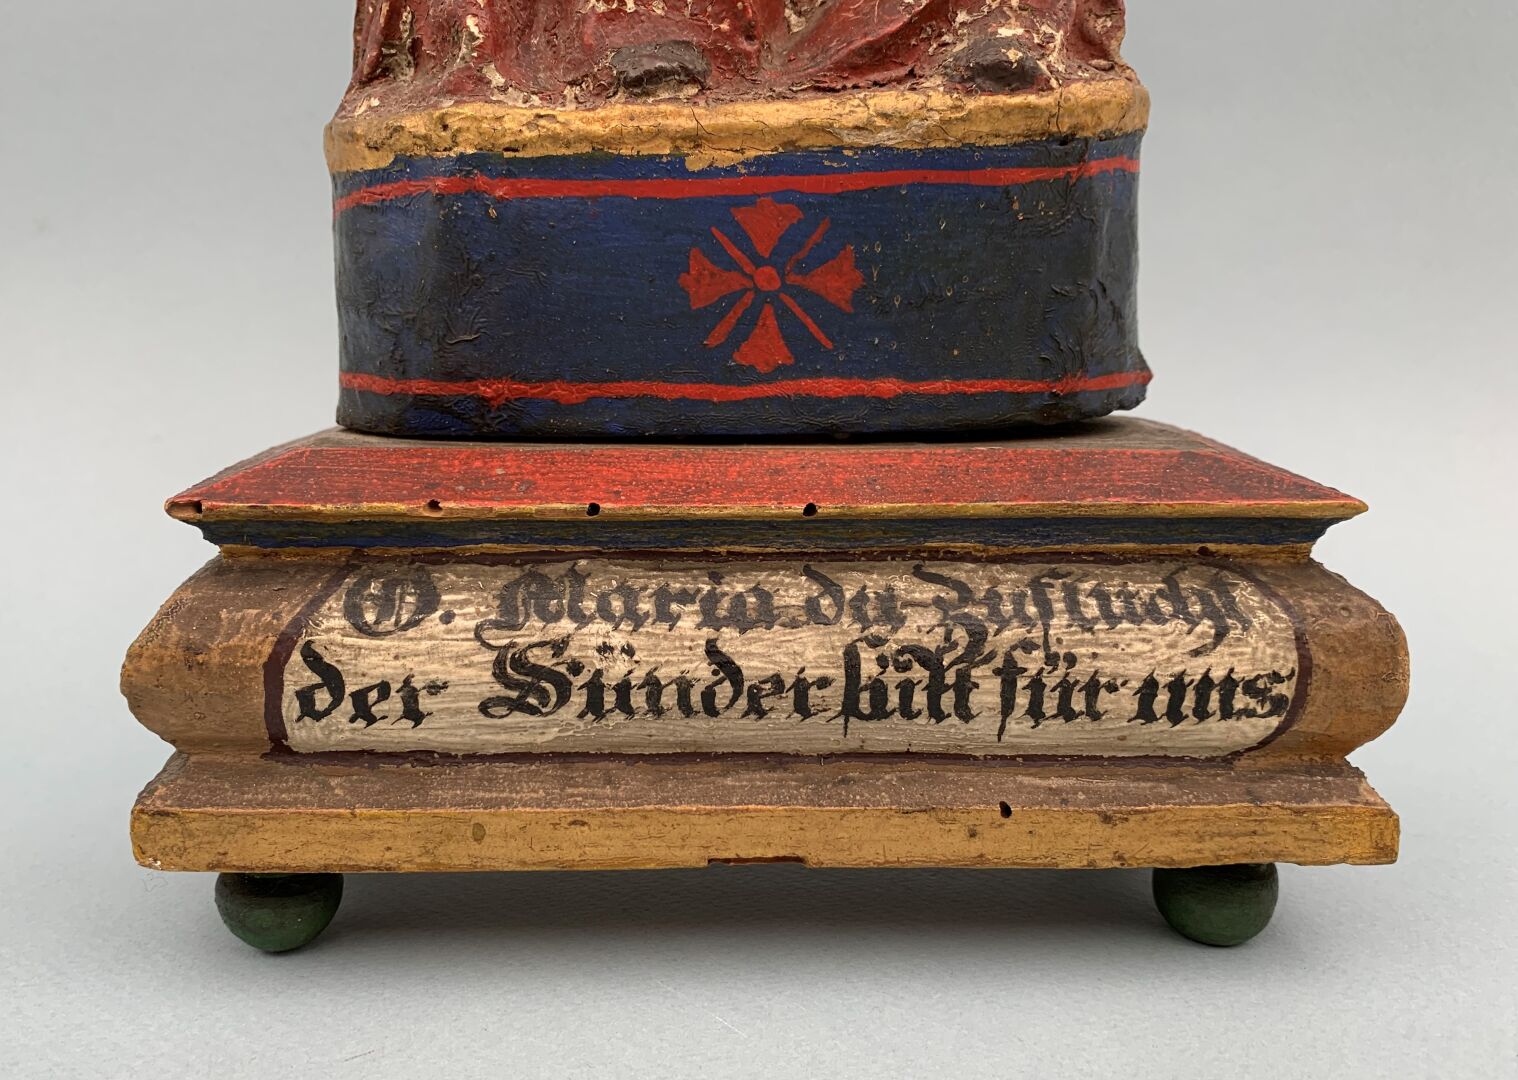 O. Maria du Zuflucht
der Sünder bitt für uns